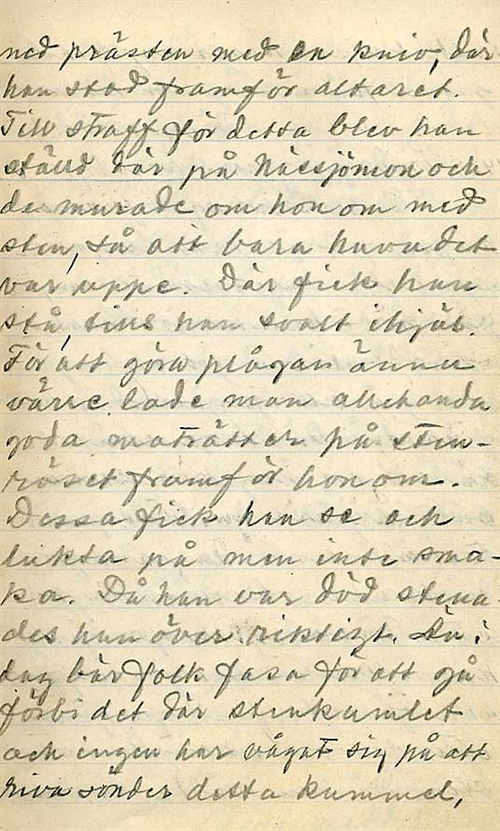 ned prästen med en kniv, där
han stod framför altaret.
Till straff för detta blev han
ställd där på Nässjömon och
de murade om honom med
sten, så att bara huvudet
var uppe. Där fick han
stå, tills han svalt ihjäl.
För att göra plågan ännu
värre lade man allehanda
goda maträtter på sten-
röset framför honom.
Dessa fick han se och
lukta på men inte sma-
ka. Då han var död stena-
des han över riktigt. Än i
dag bär folk fasa för att gå
förbi det där stenkumlet
och ingen har vågat sig på att
riva sönder detta kummel,